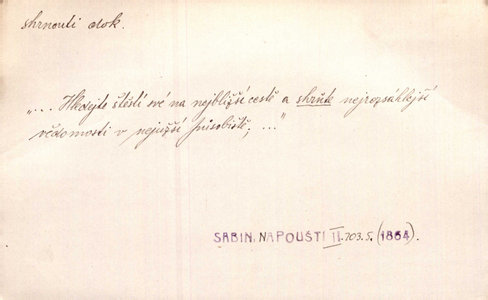 shrnouti dok.
„... Hledejte štěstí své na nejbližší cestě a shrňte nejrozsáhlejší
vědomosti v nejužší působiště, ..."
SABIN, NA POUŠTI II. 103. S. (1864).